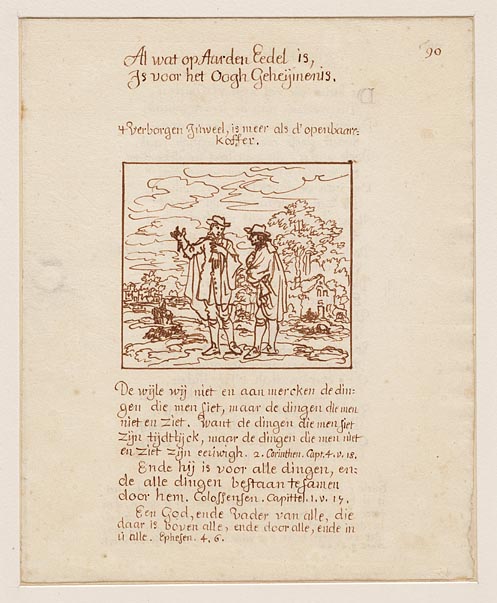 90
Al wat op Aarden Eedel is,
Is voor het Oogh Geheijmenis.
't Verborgen Juweel, is meer als d'openbaare
koffer.
De wijle wij niet en aan mercken de din:
gen die men siet, maar de dingen die men
niet en ziet. Want de dingen die men siet
zijn tijdtlijck, maar de dingen die men niet
en ziet zijn eeuwigh. 2. Corinthen. Capt. 4. v. 18.
Ende hij is voor alle dingen, en:
de alle dingen bestaan tesamen
door hem. Colossensen. Capittel. 1. v. 17.
Een God, ende Vader van alle, die
daar is boven alle, ende door alle, ende in
ú alle. Ephesen. 4. 6.